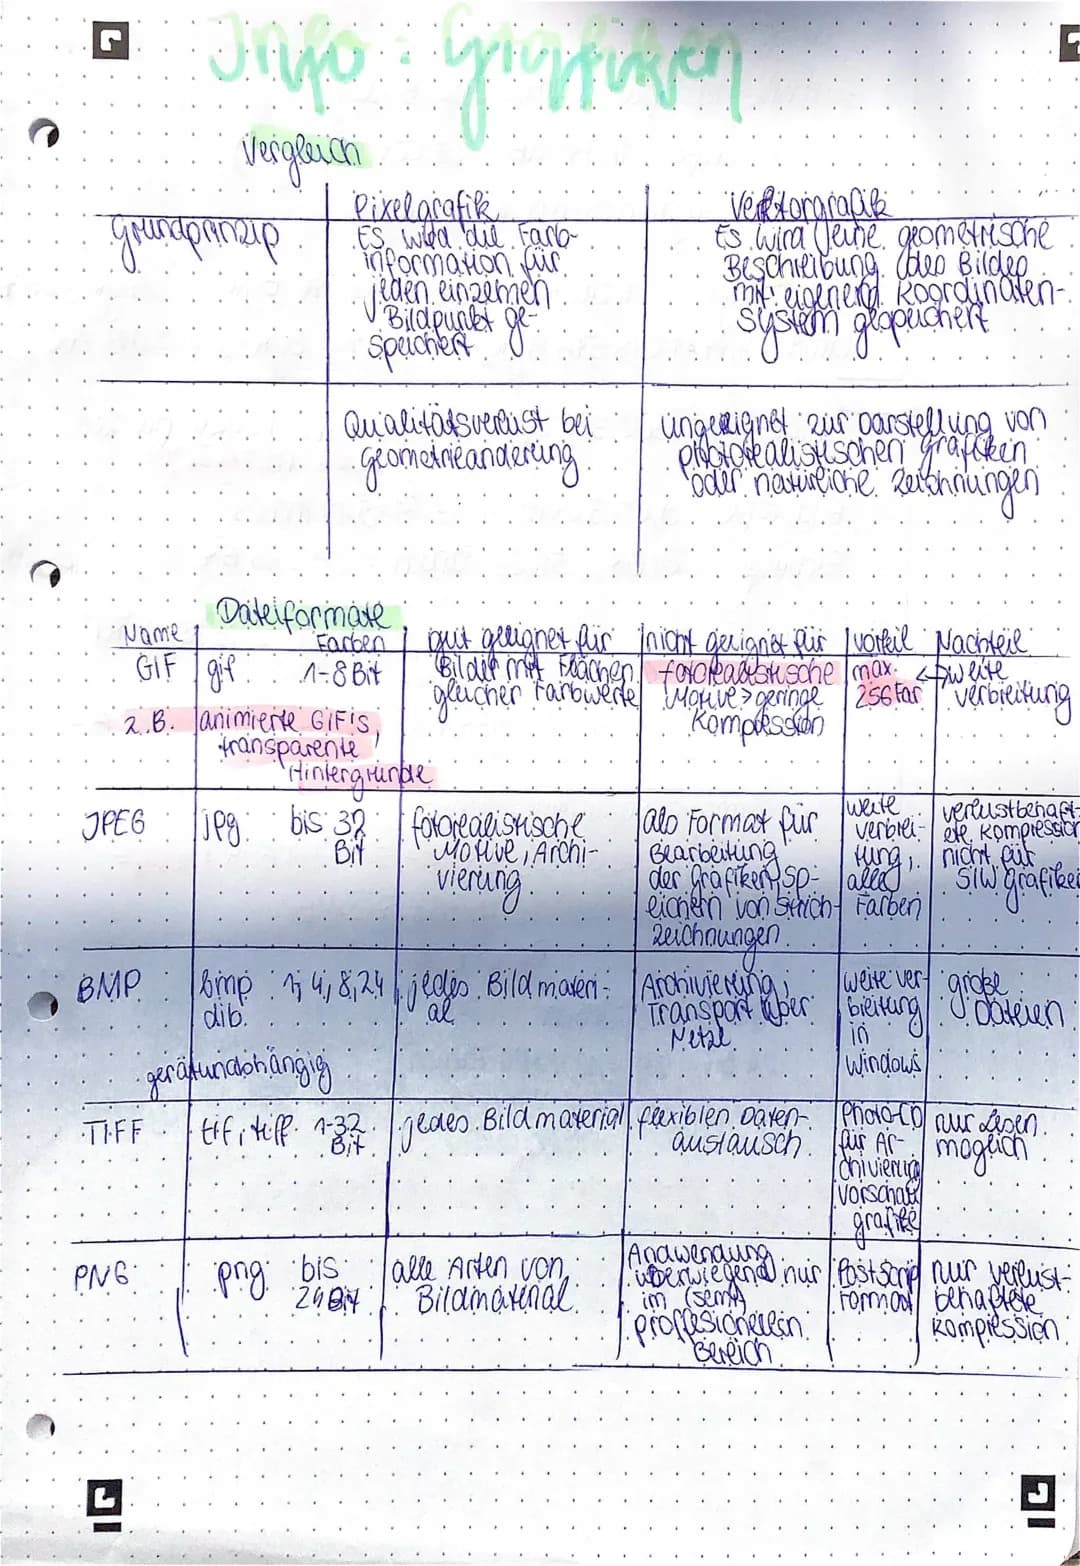 Info: Grafiken
Vergleich
Pixelgrafik
Vektorgrafik
Grundprinzip
Es wird die Farb-
information für
jeden einzelnen
Bildpunkt ge-
speichert
Es wird eine geometrische
Beschreibung des Bildes
mit eigenem Koordinaten-
system gespeichert
Qualitätsverlust bei
geometrieänderung
ungeeignet zur Darstellung von
photorealistischen grafiken
oder natürliche Zeichnungen
Dateiformate
Name
Farben
gut geeignet für
nicht geeignet für
Vorteil
Nachteil
GIF
gif
1-8 Bit
Bilder mit Flächen
gleicher Farbwerte
fotorealistische
Motive > geringe
Kompression
max.
256 Far
<-> weite
verbreitung
z.B. animierte GIFs,
transparente
Hintergründe
JPEG
jpg
bis 32
Bit
fotorealistische
Motive, Archi-
vierung
als Format für
Bearbeitung
der grafiken, Sp-
eichern von Strich-
zeichnungen
weite
verbrei-
tung,
alle
Farben
verlustbehaft-
ete Kompression
nicht für
S/W grafiken
BMP
bmp
dib
1, 4, 8, 24
jedes Bildmateri-
al
Archivierung,
Transport über
Netze
weite ver-
breitung
in
Windows
große
Dateien
geräteunabhängig
TIFF
tif, tiff
1-32
Bit
jedes Bildmaterial
flexiblen Daten-
austausch
Photo-CD
für Ar-
chivierung
vorschau
grafik
nur lesen
möglich
PNG
png
bis
24 Bit
alle Arten von
Bildmaterial
Andwendung
überwiegend nur
im (semi)
proffesionellen
Bereich
PostScrip
Format
nur verlust-
behaftete
Kompression